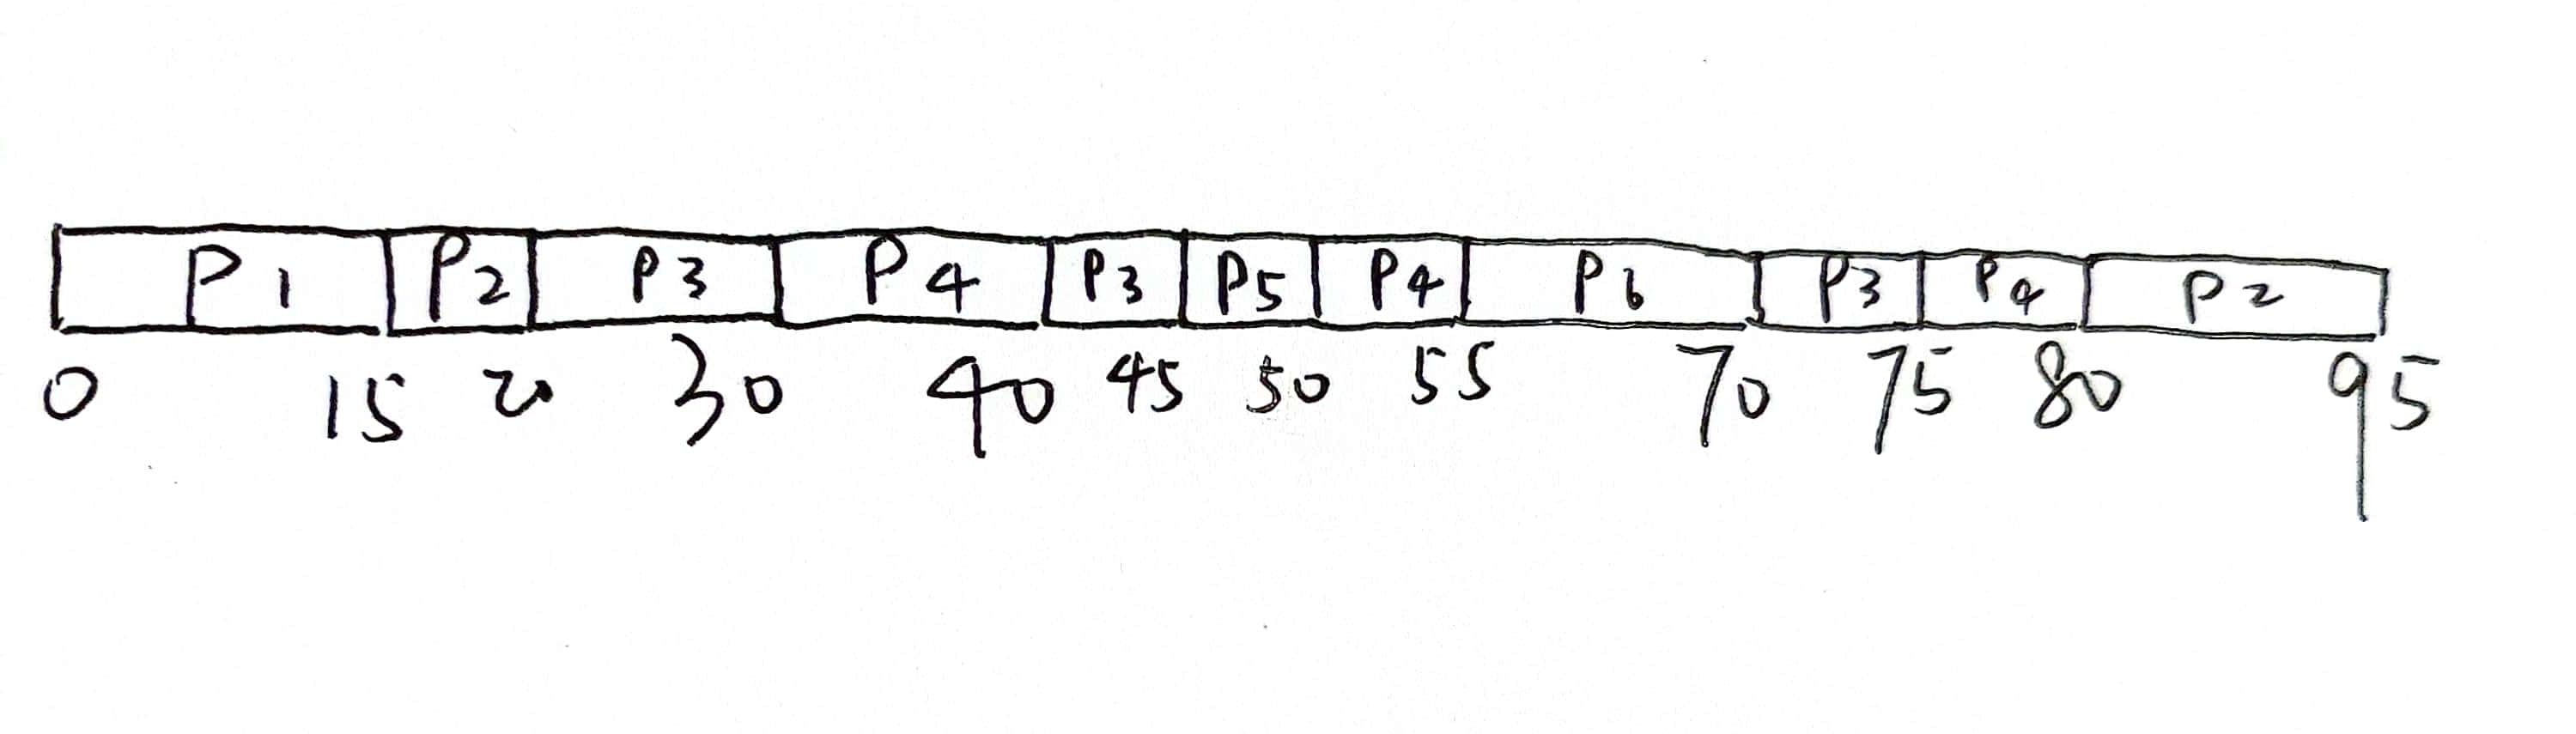 P1 P2 P3 P4 P3 P5 P4 P6 P3 P4 P2
0 15 20 30 40 45 50 55 70 75 80 95